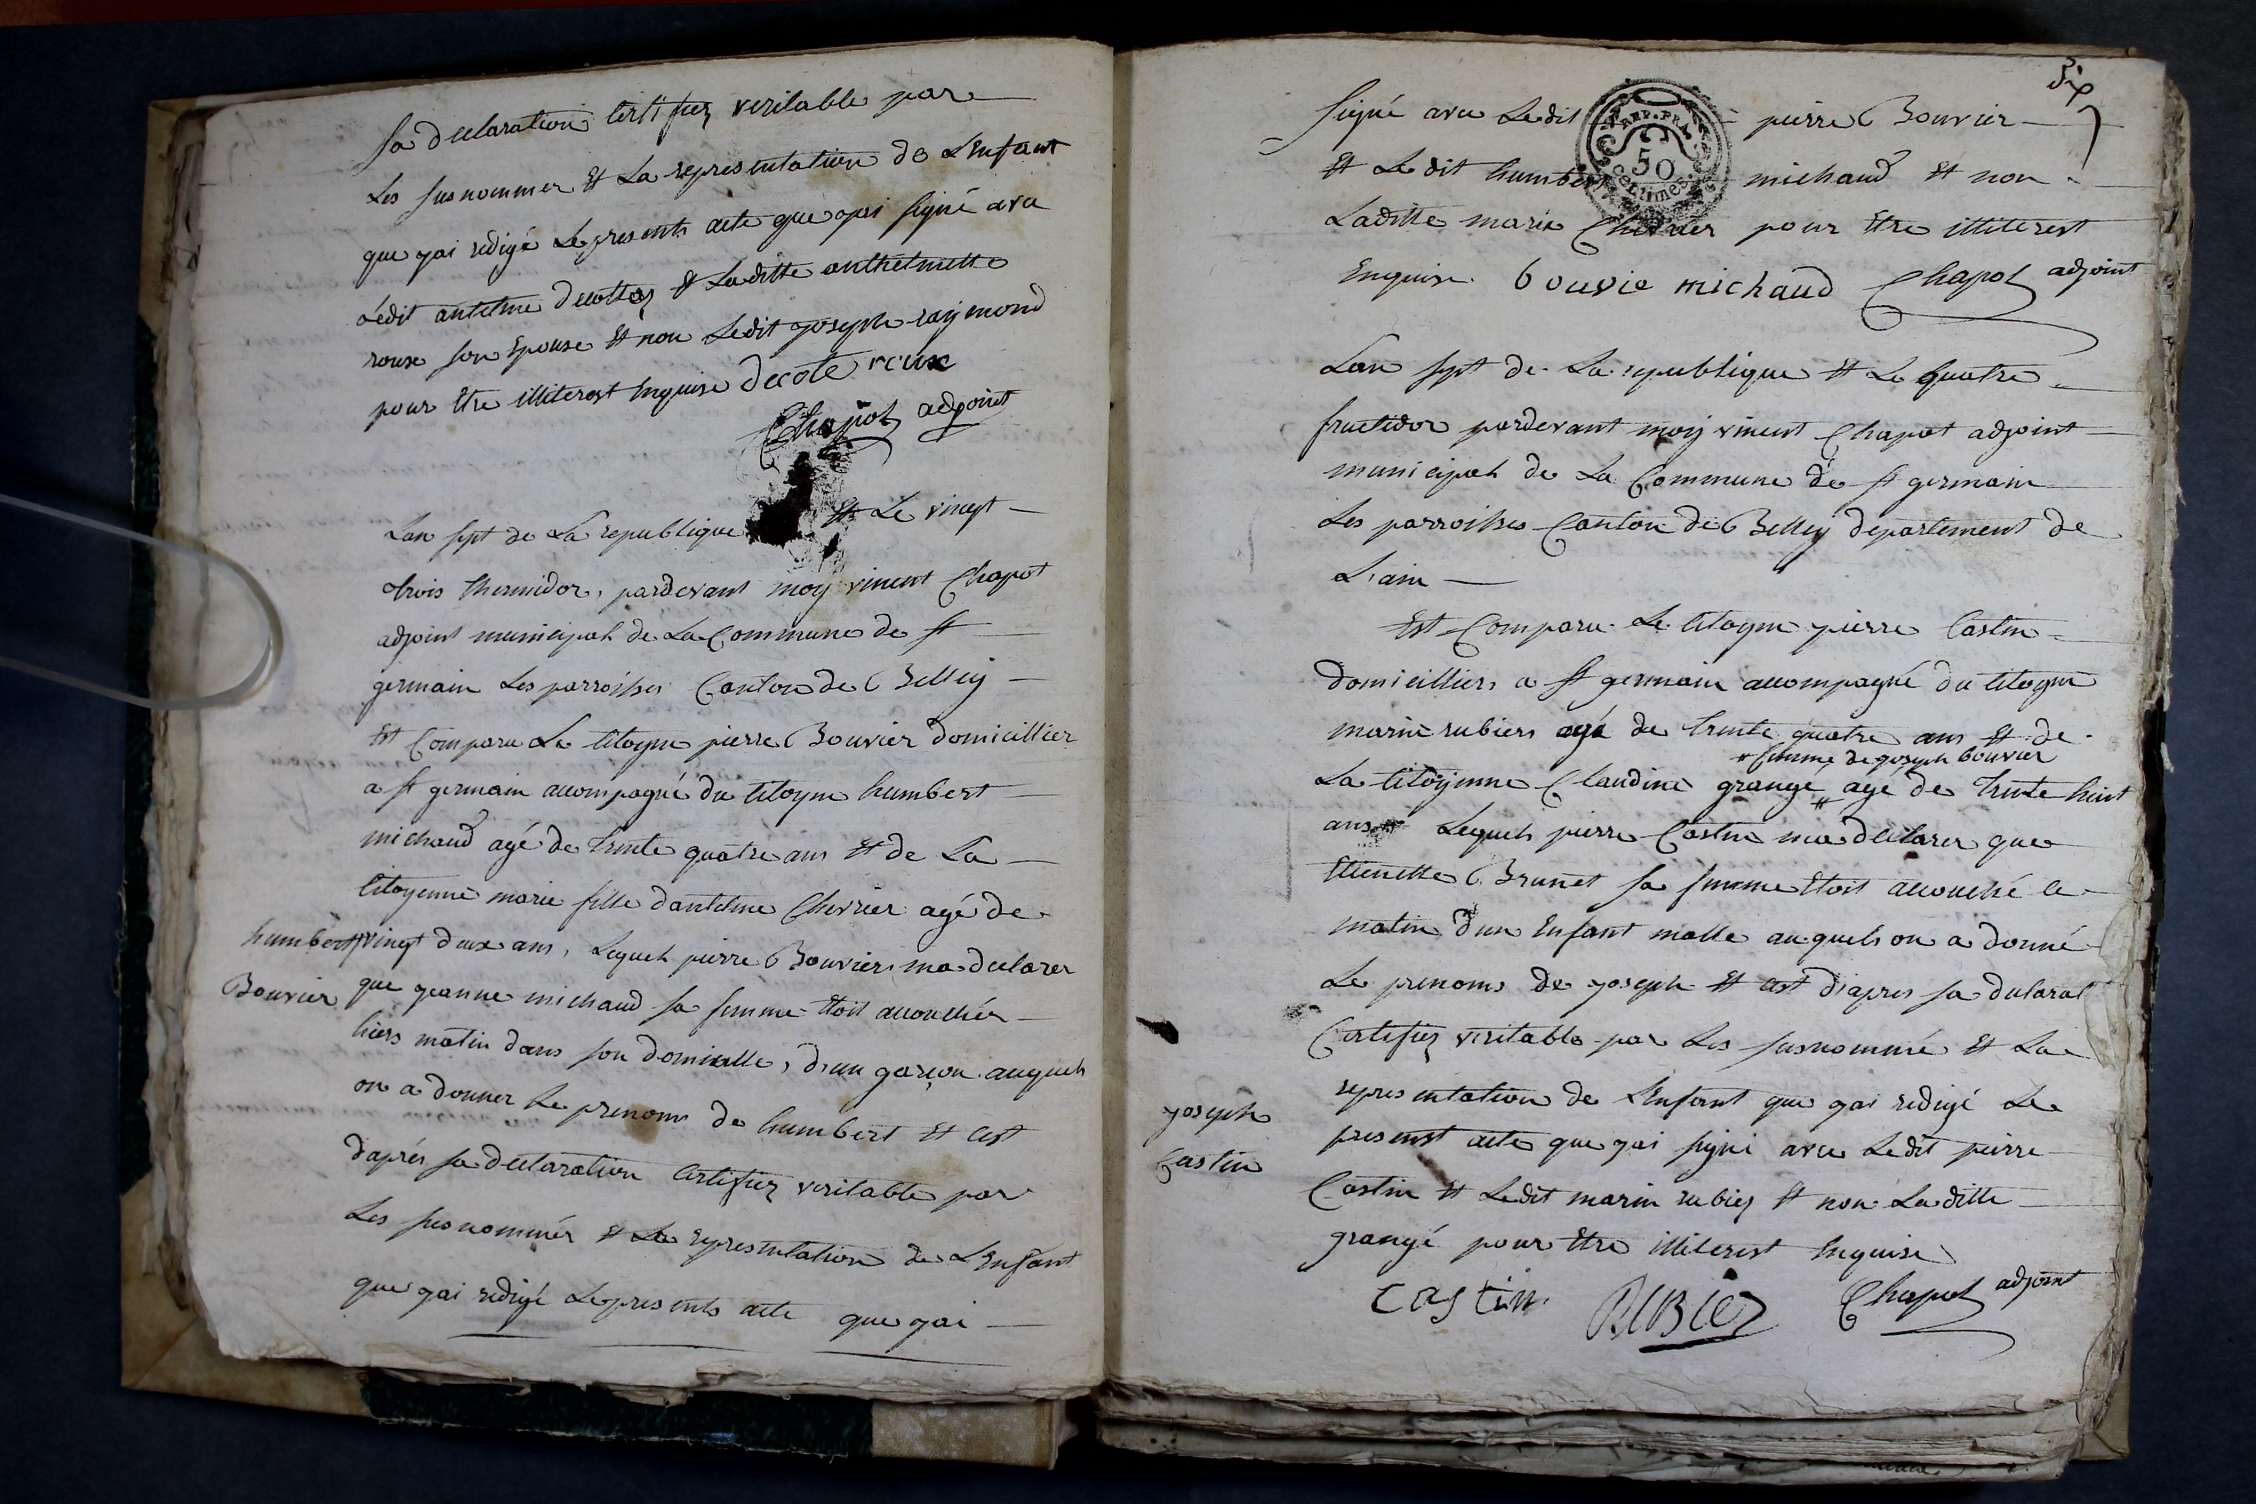 sa declaration certifiez veritable par
les susnommer et la representation de Lenfant
que jai redigé le presents acte que jai signé avec
Ledit antelme decottez et laditte anthelmette
roux son Epouse et non ledit joseph raymond
pour Etre illiterest Enquise decote roux
Chapot adjoint
Lan sept de La republique et Le vingt
trois thermidor, pardevant moy vincent Chapot
adjoint municipal de La Commune de st
germain Les parroisses Canton de Belley
Est Comparu Le citoyen pierre Bouvier domicillier
a st germain accompagné du citoyen humbert
michaud agé de trente quatre ans et de La
citoyenne marie fille dantelme Chevrier agé de
vingt deux ans, Lequel pierre Bouvier ma declarer
que jeanne michaud sa femme Etoit accouchér
hiers matin dans son domicille, d'un garçon auquels
on a donner Le prenoms de humbert et cest
d'aprés sa declaration certifiez veritable par
Les susnommér et la representation de LEnfant
que jai redigé Lepresents acte que jai
humbert
Bouvier
six
signé avec Ledit pierre Bouvier
REP. FRA.
50
CENTIMES
et Ledit humbert michaud et non
Laditte marie Chevrier pour Etre illiterest
Enquise. bouvie michaud Chapot adjoint
Lan sept de La republique et Le quatre
fructidor pardevant moy vincent Chapot adjoint
municipal de La Commune de st germain
Les parroisses Canton de Belley departement de
L'ain
Est Comparu Le citoyen pierre Castin
domicilliers a st germain accompagné du citoyen
marin rubiers agé de trente quatre ans et de
femme de joseph bouvier
La citoyenne Claudine grangé agé de trente huit
ans Lequels pierre Castin ma declarer que
Etienette Brunet sa femme Etoit accouché ce
matin d'un Enfant malle auquels on a donné
Le prenoms de joseph et cest d'apres sa declarat
Certifiez veritable par Les susnommé et La
representation de LEnfant que jai redigé Le
presenst acte que jai signé avec Ledit pierre
Castin et Ledit marin rubiez et non Laditte
grangé pour Etre illiterest Enquise
joseph
Castin
castin RUBIEZ Chapot adjoint